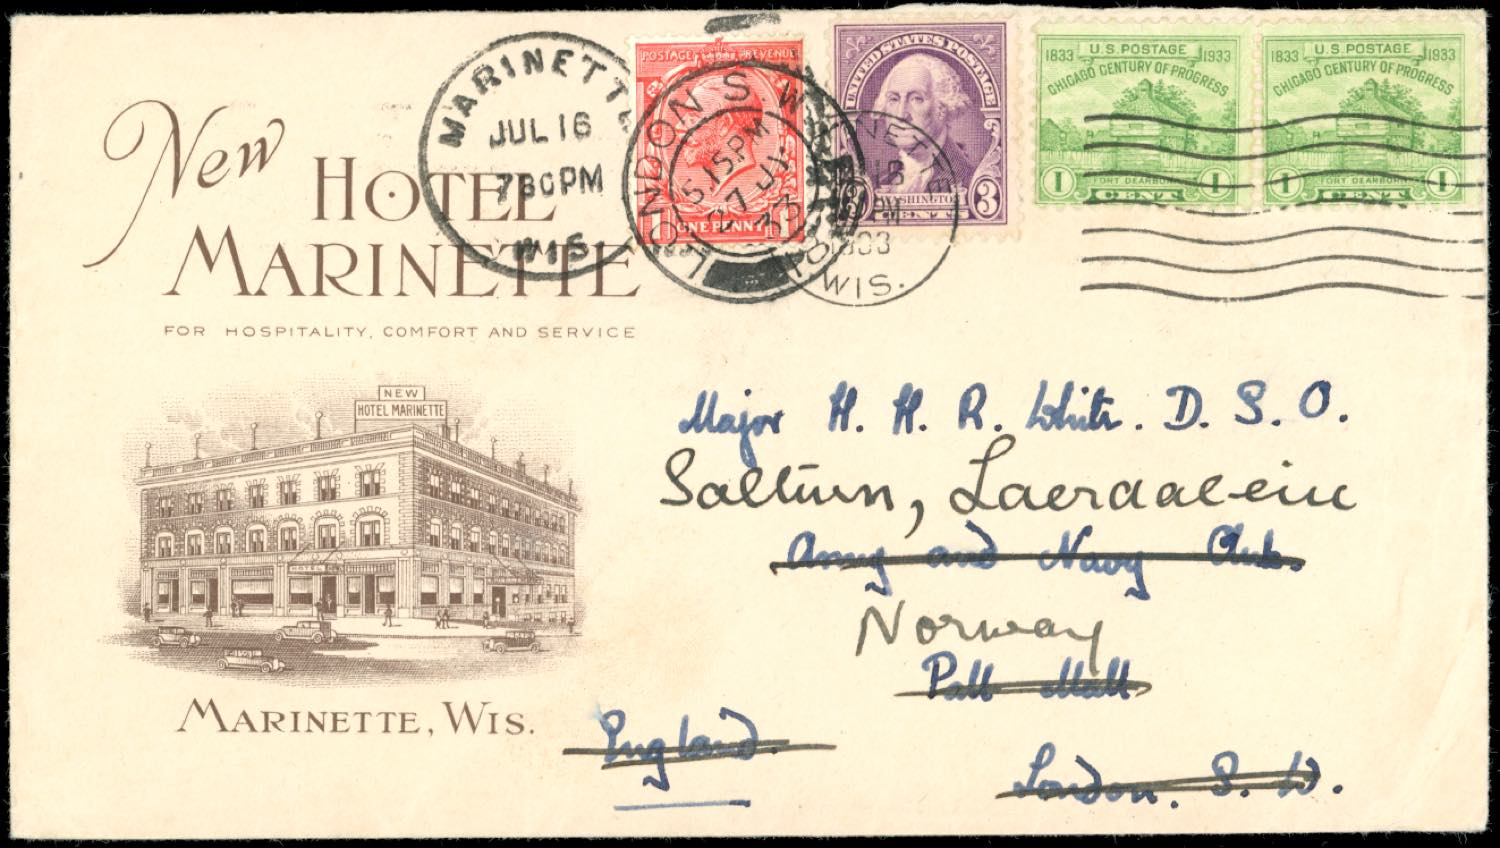 New
HOTEL
MARINETTE
FOR HOSPITALITY, COMFORT AND SERVICE
NEW
HOTEL MARINETTE
HOTEL
MARINETTE, WIS.
MARINETTE
JUL 16
730PM
WIS.
POSTAGE REVENUE
ONE PENNY
LONDON S.W.
5.15PM
27 JY
33
UNITED STATES POSTAGE
WASHINGTON
3 CENTS 3
1933
WIS.
1833 U.S. POSTAGE 1933
CHICAGO CENTURY OF PROGRESS
FORT DEARBORN
1 CENT 1
1833 U.S. POSTAGE 1933
CHICAGO CENTURY OF PROGRESS
FORT DEARBORN
1 CENT 1
Major H. H. R. White. D. S. O.
Saltun, Laerdalseire
Army and Navy Club.
Norway
Pall Mall
England.
London. S. W.